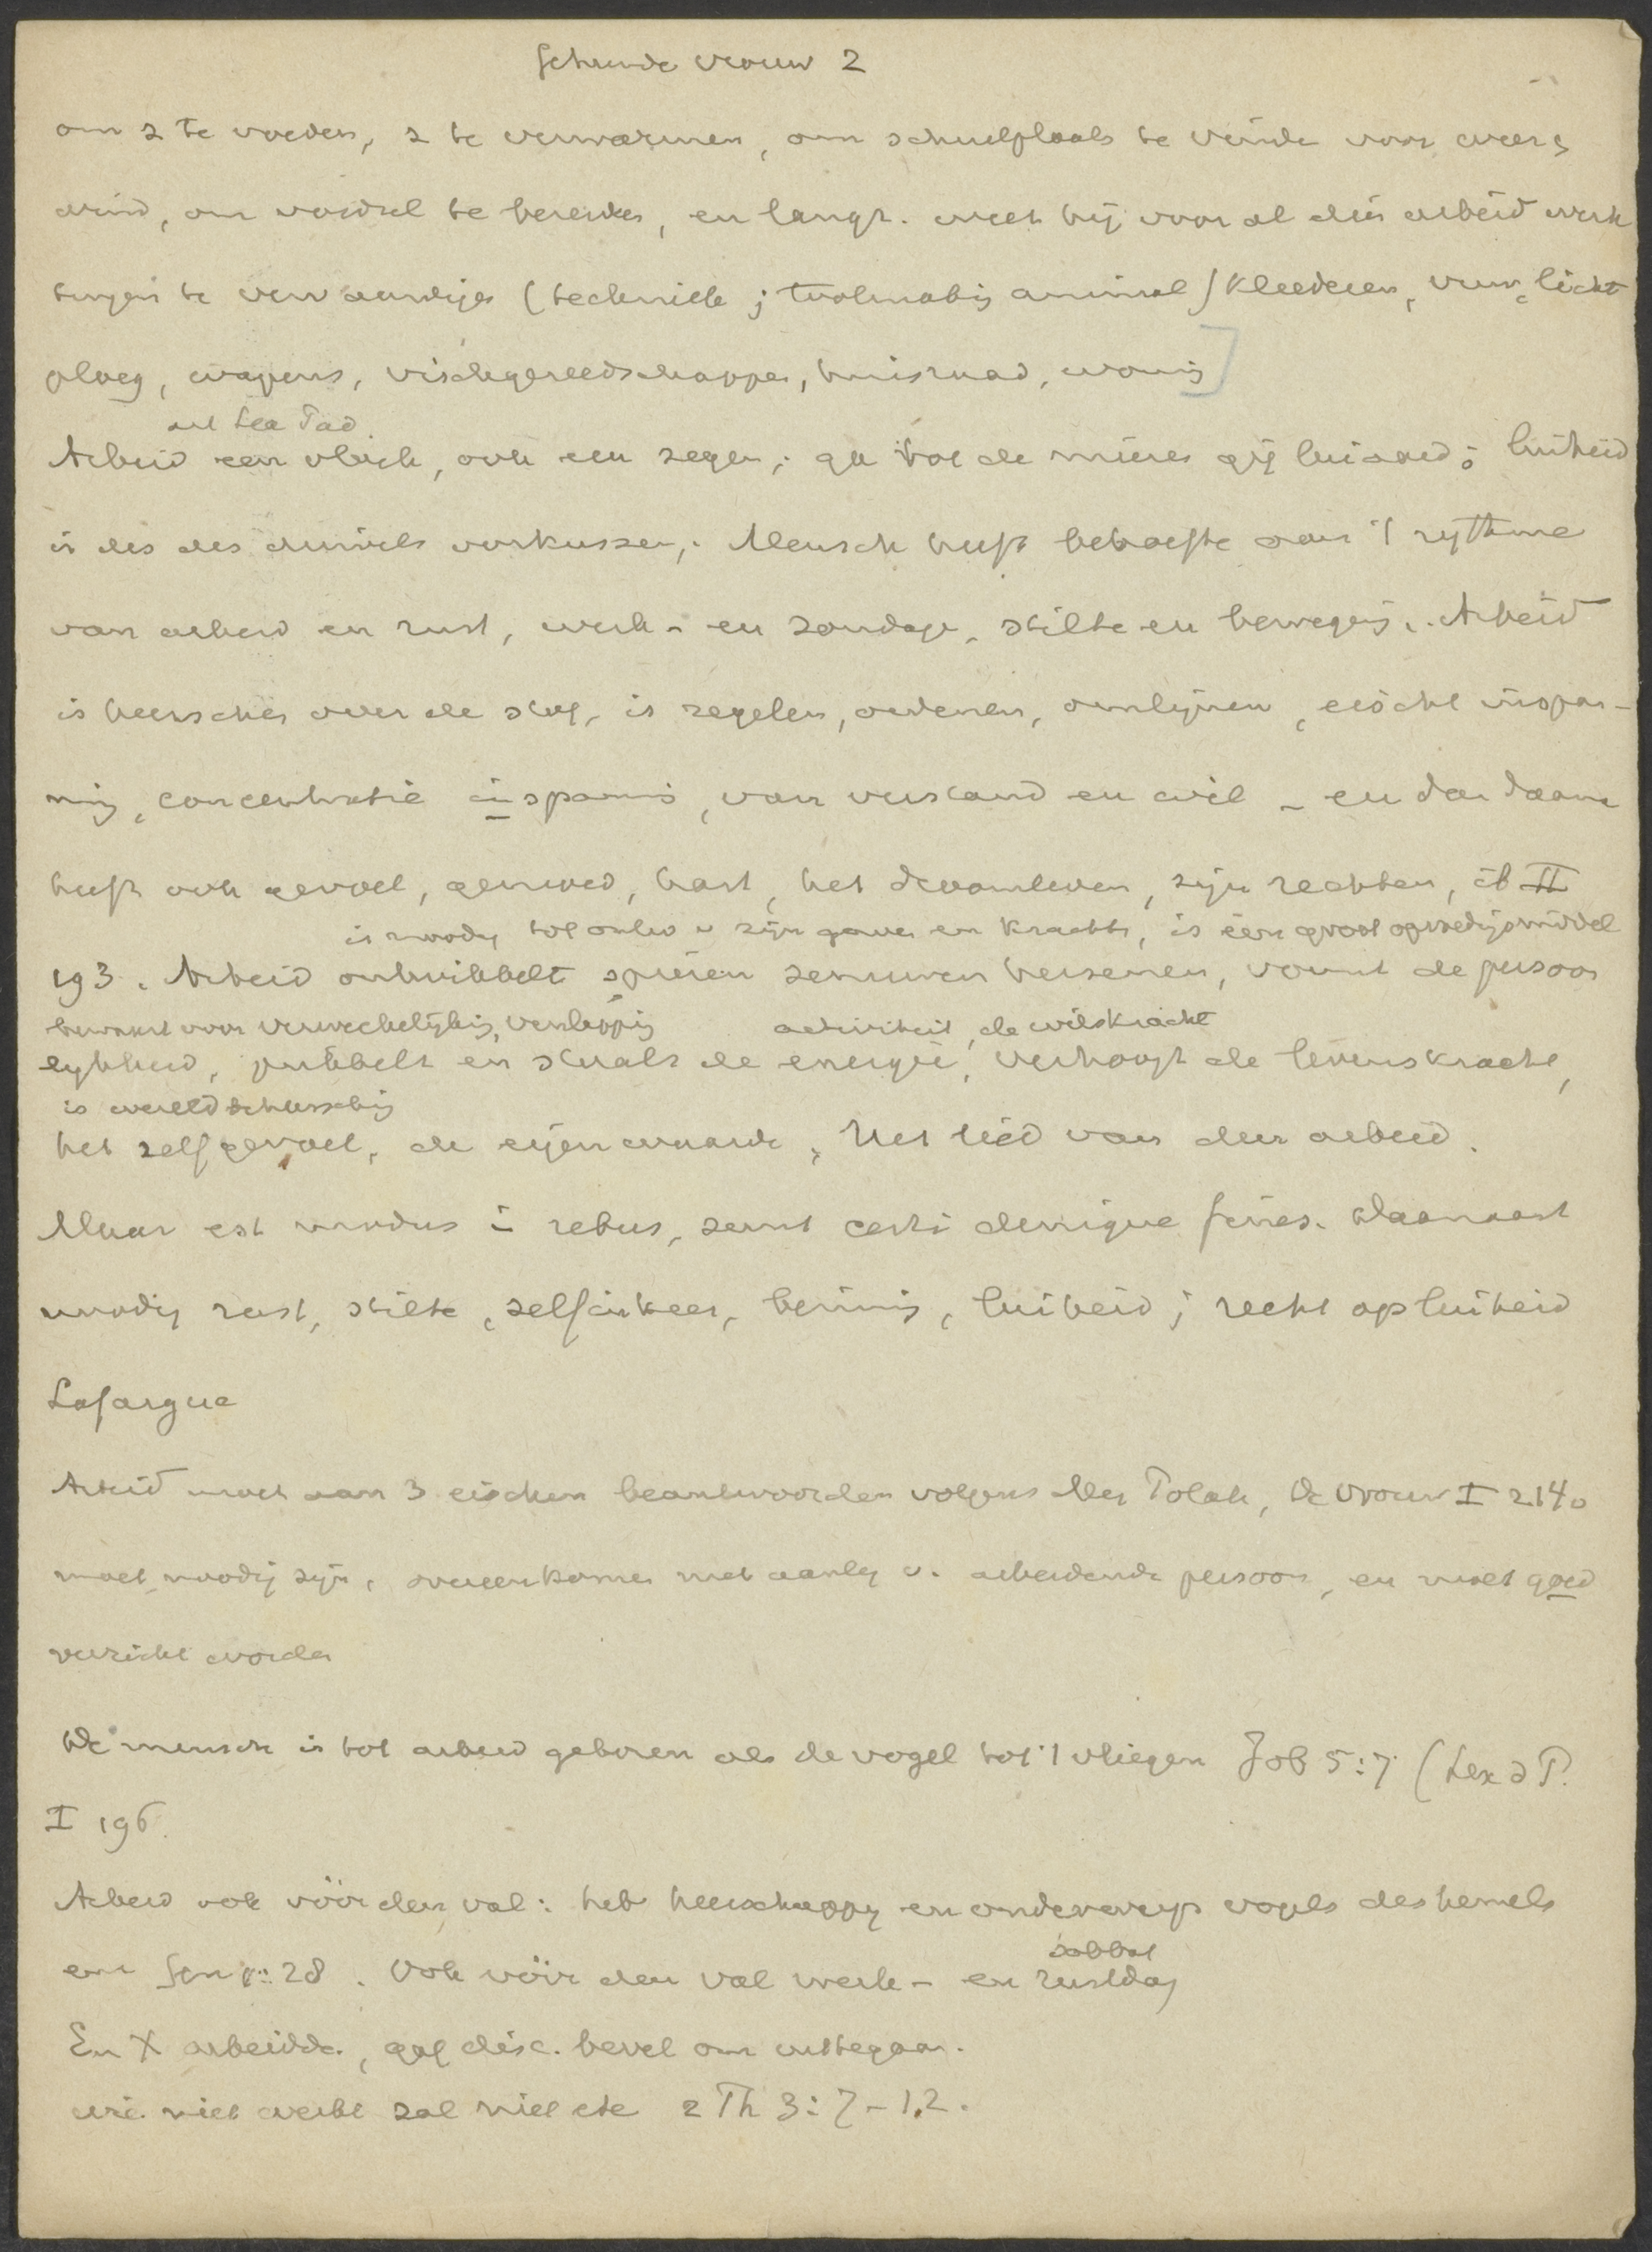 vrouw 2
om z te voeden, z te verwarmen, om schuilplaats te vinde voor weer &
wind, om voedsel te bereiden, en langz. weet hij voor al dien arbeid werk
tuigen te vervaardige (techniek; toolmaking animal) kleederen, vuur, licht
ploeg, wapens, vischgereedschappen, huisraad, woning]
Arbeid een vloek, ook een zegen; ga tot de mieren gij luiaard; luiheid
is des des duivels oorkussen; Mensch heeft behoefte aan 't rythme
van arbeid en rust, werk- en zondage, stilte en beweging. Arbeid
is heerschen over de stof, is regelen, ordenen, omlijnen, eischt inspan-
ning, concentratie inspannig, van verstand en wil - en daarnaast
heeft ook gevoel, gemoed, hart, het droomleven, zijn rechten, ib II
is noodig tot ontw v zijn gaven en krachte, is een groot opvoedigsmiddel
193. Arbeid ontwikkelt spieren zenuwen hersenen, vormt de persoon
bewaart voor verweekelijking, verslapping activiteit, de wilskracht
lykheid, prikkelt en staalt de energie, verhoogt de levenskracht,
is wereldbeheersching
het zelfgevoel, de eigenwaarde, Het lied van den arbeid.
Maar est modus i rebus, sunt certi denique fines. Daarnaast
noodig rust, stilte, zelfinkeer, luiheid; recht op luiheid
Lafargue
Arbeid moet aan 3 eischen beantwoorden volgens Mej Polak, De Vrouw I 2140
moet noodig zijn, overeenkomen met aanleg v. arbeidende persoon, en moet goed
verricht worden
De mensch is tot arbeid geboren als de vogel tot 't vliegen Job 5:7 (Lex a P.
I 196.
Arbeid ook vóór den val: heb heerschappy en onderwerp vogels des hemels
enz Gen 1:28. Ook vóór den val werk- en rustdag
sabbat
En X arbeidde, gaf disc. bevel om uit te gaan.
wie niet werkt zal niet ete 2 Th 3:7-12.